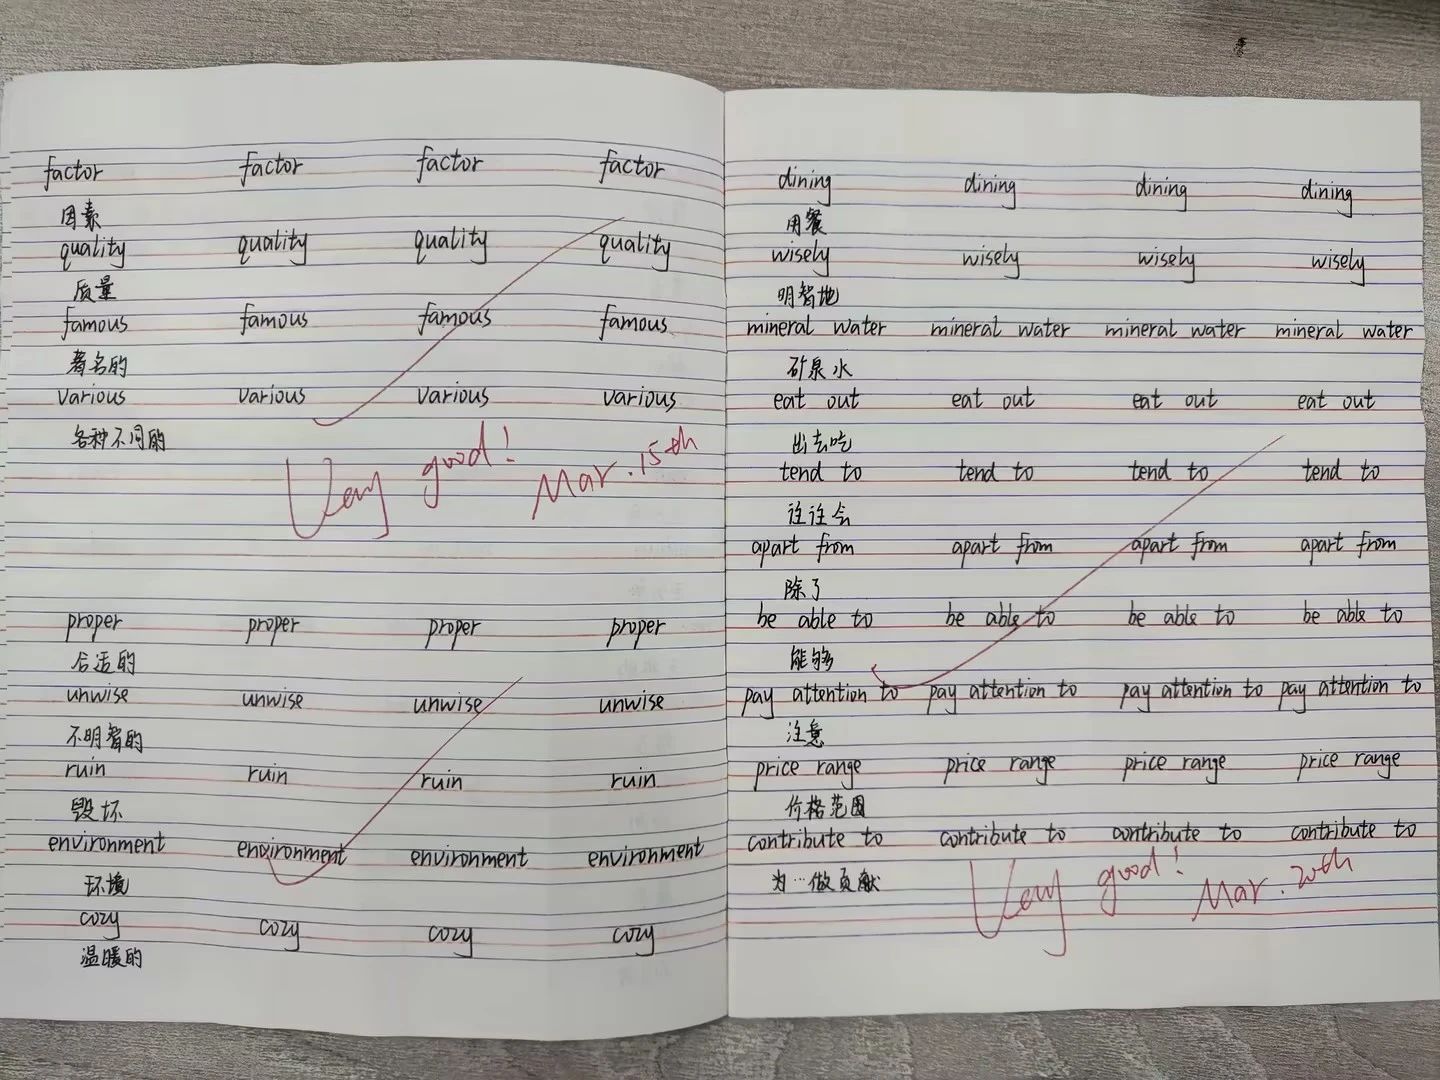 factor factor factor factor
因素
quality quality quality quality
质量
famous famous famous famous
著名的
various various various various
各种不同的
Very good! Mar. 15th
proper proper proper proper
合适的
unwise unwise unwise unwise
不明智的
ruin ruin ruin ruin
毁坏
environment environment environment environment
环境
cozy cozy cozy cozy
温暖的
dining dining dining dining
用餐
wisely wisely wisely wisely
明智地
mineral water mineral water mineral water mineral water
矿泉水
eat out eat out eat out eat out
出去吃
tend to tend to tend to tend to
往往会
apart from apart from apart from apart from
除了
be able to be able to be able to be able to
能够
pay attention to pay attention to pay attention to pay attention to
注意
price range price range price range price range
价格范围
contribute to contribute to contribute to contribute to
为…做贡献
Very good! Mar. 20th